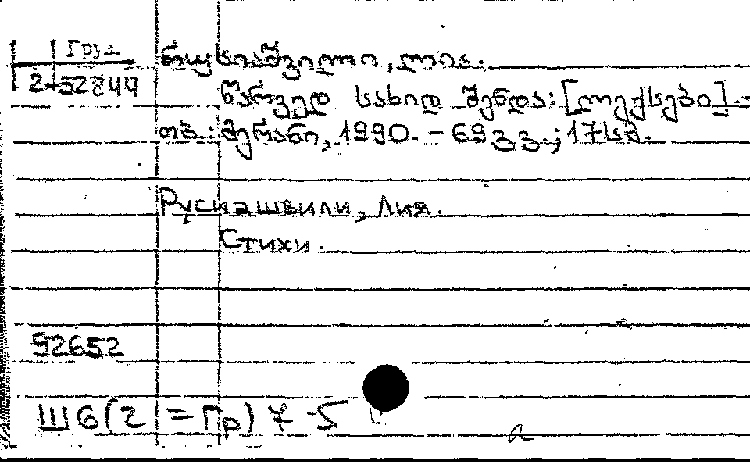 Груз
2-52844
რუსიაშვილი, ლია.
წარვედ სახიდ შენდა: [ლექსები] -
თბ.: მერანი, 1990. - 69 გვ.; 17 სმ.
Русиашвили, Лия.
Стихи.
92652
Ш6(2=Гр)7-5